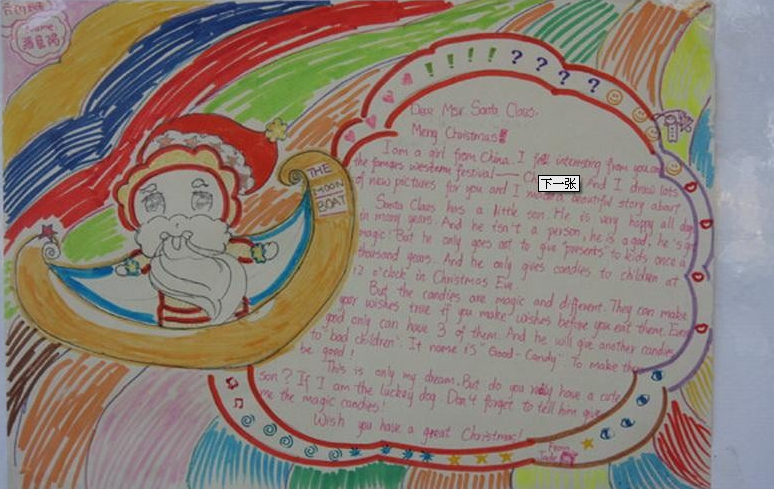 name
THE
MOON
BOAT
! ! ! ! ? ? ? ?
Dear Msr. Santa Claus,
Merry Christmas!
I am a girl from China. I feel interesting from you and
the famors western festival — Ch And I draw lots
of new pictures for you and I beautiful story about
Santa Claus has a little son. He is very happy all day
in many years. And he isn't a person, he is a god, he's got
magic! But he only goes out to give "presents" to kids once a
thousand years. And he only gives candies to children at
12 o'clock in Christmas Eve.
But the candies are magic and different. They can make
your wishes true if you make wishes before you eat them. Every
good only can have 3 of them. And he will give another candies
to "bad children". It name is "Good-Candy". To make them
be good!
This is only my dream. But do you really have a cute
son? If I am the luckey dog. Don't forget to tell him give
me the magic candies!
Wish you have a great Christmas!
From
Jade
下一张